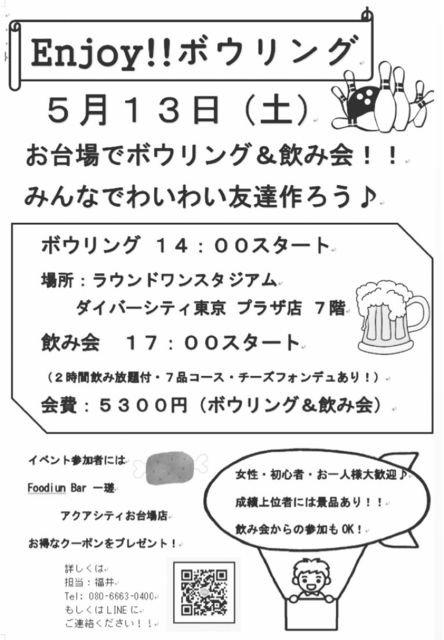 Enjoy!!ボウリング
５月１３日（土）
お台場でボウリング＆飲み会！！
みんなでわいわい友達作ろう♪
ボウリング １４：００スタート
場所：ラウンドワンスタジアム
ダイバーシティ東京 プラザ店 ７階
飲み会　１７：００スタート
（２時間飲み放題付・７品コース・チーズフォンデュあり！）
会費：５３００円（ボウリング＆飲み会）
イベント参加者には
Foodiun Bar 一瑳
アクアシティお台場店
お得なクーポンをプレゼント！
女性・初心者・お一人様大歓迎♪
成績上位者には景品あり！！
飲み会からの参加もOK！
詳しくは
担当：福井
Tel: 080-6663-0400
もしくはLINEに
ご連絡ください！！